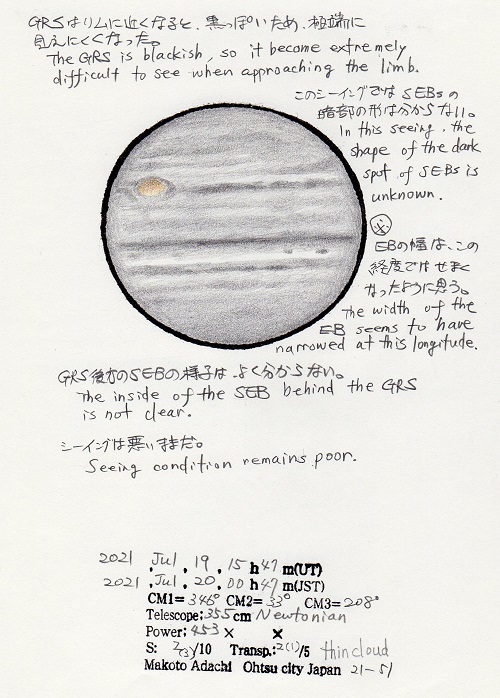 GRSはリムに近くなると、黒っぽいため、極端に
見えにくくなった。
The GRS is blackish, so it become extremely
difficult to see when approaching the limb.
このシーイングではSEBsの
暗部の形は分からない。
In this seeing, the
shape of the dark
spot of SEBs is
unknown.
EBの幅は、この
経度ではせまく
なったように思う。
The width of the
EB seems to have
narrowed at this longitude.
GRS後方のSEBの様子は よく分からない。
The inside of the SEB behind the GRS
is not clear.
シーイングは悪いままだ。
Seeing condition remains poor.
2021 . Jul . 19 . 15 h 47 m(UT)
2021 . Jul . 20 . 00 h 47 m(JST)
CM1= 346° CM2= 33° CM3= 208°
Telescope; 355 cm Newtonian
Power; 453 × ×
S: 2(3)/10 Transp.: 2(1)/5 thin cloud
Makoto Adachi Ohtsu city Japan 21-51